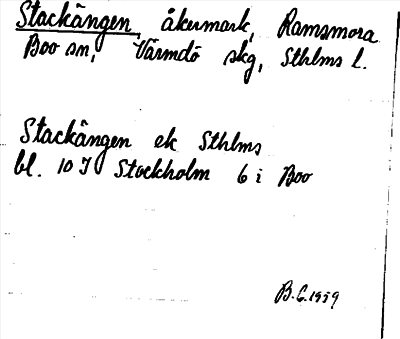 Stackängen, åkermark, Ramsmora
Boo sn, Värmdö skg, Sthlms l.
Stackängen ek Sthlms
bl. 10 J Stockholm 6 i Boo
B.G.1959